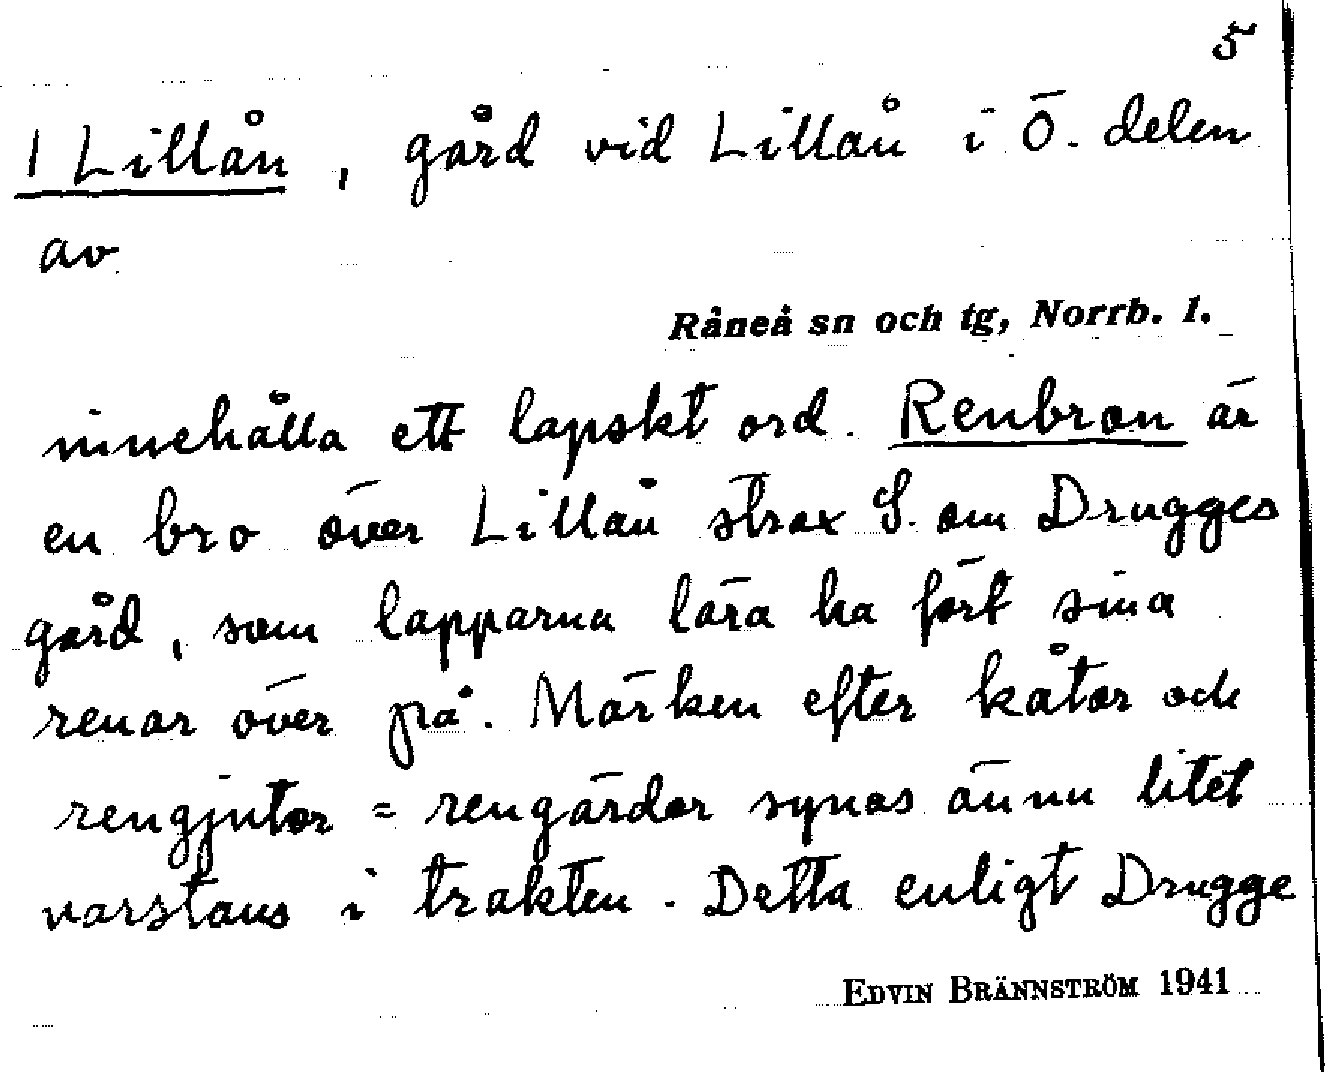 5
1 Lillån, gård vid Lillån i Ö. delen
av
Råneå sn och tg, Norrb. l.
innehålla ett lapskt ord. Renbron är
en bro över Lillån strax S. om Drugges
gård, som lapparna lära ha fört sina
renar över på. Märken efter kåtor och
rengjutor = rengärdor synas ännu litet
varstans i trakten. Detta enligt Drugge
EDVIN BRÄNNSTRÖM 1941